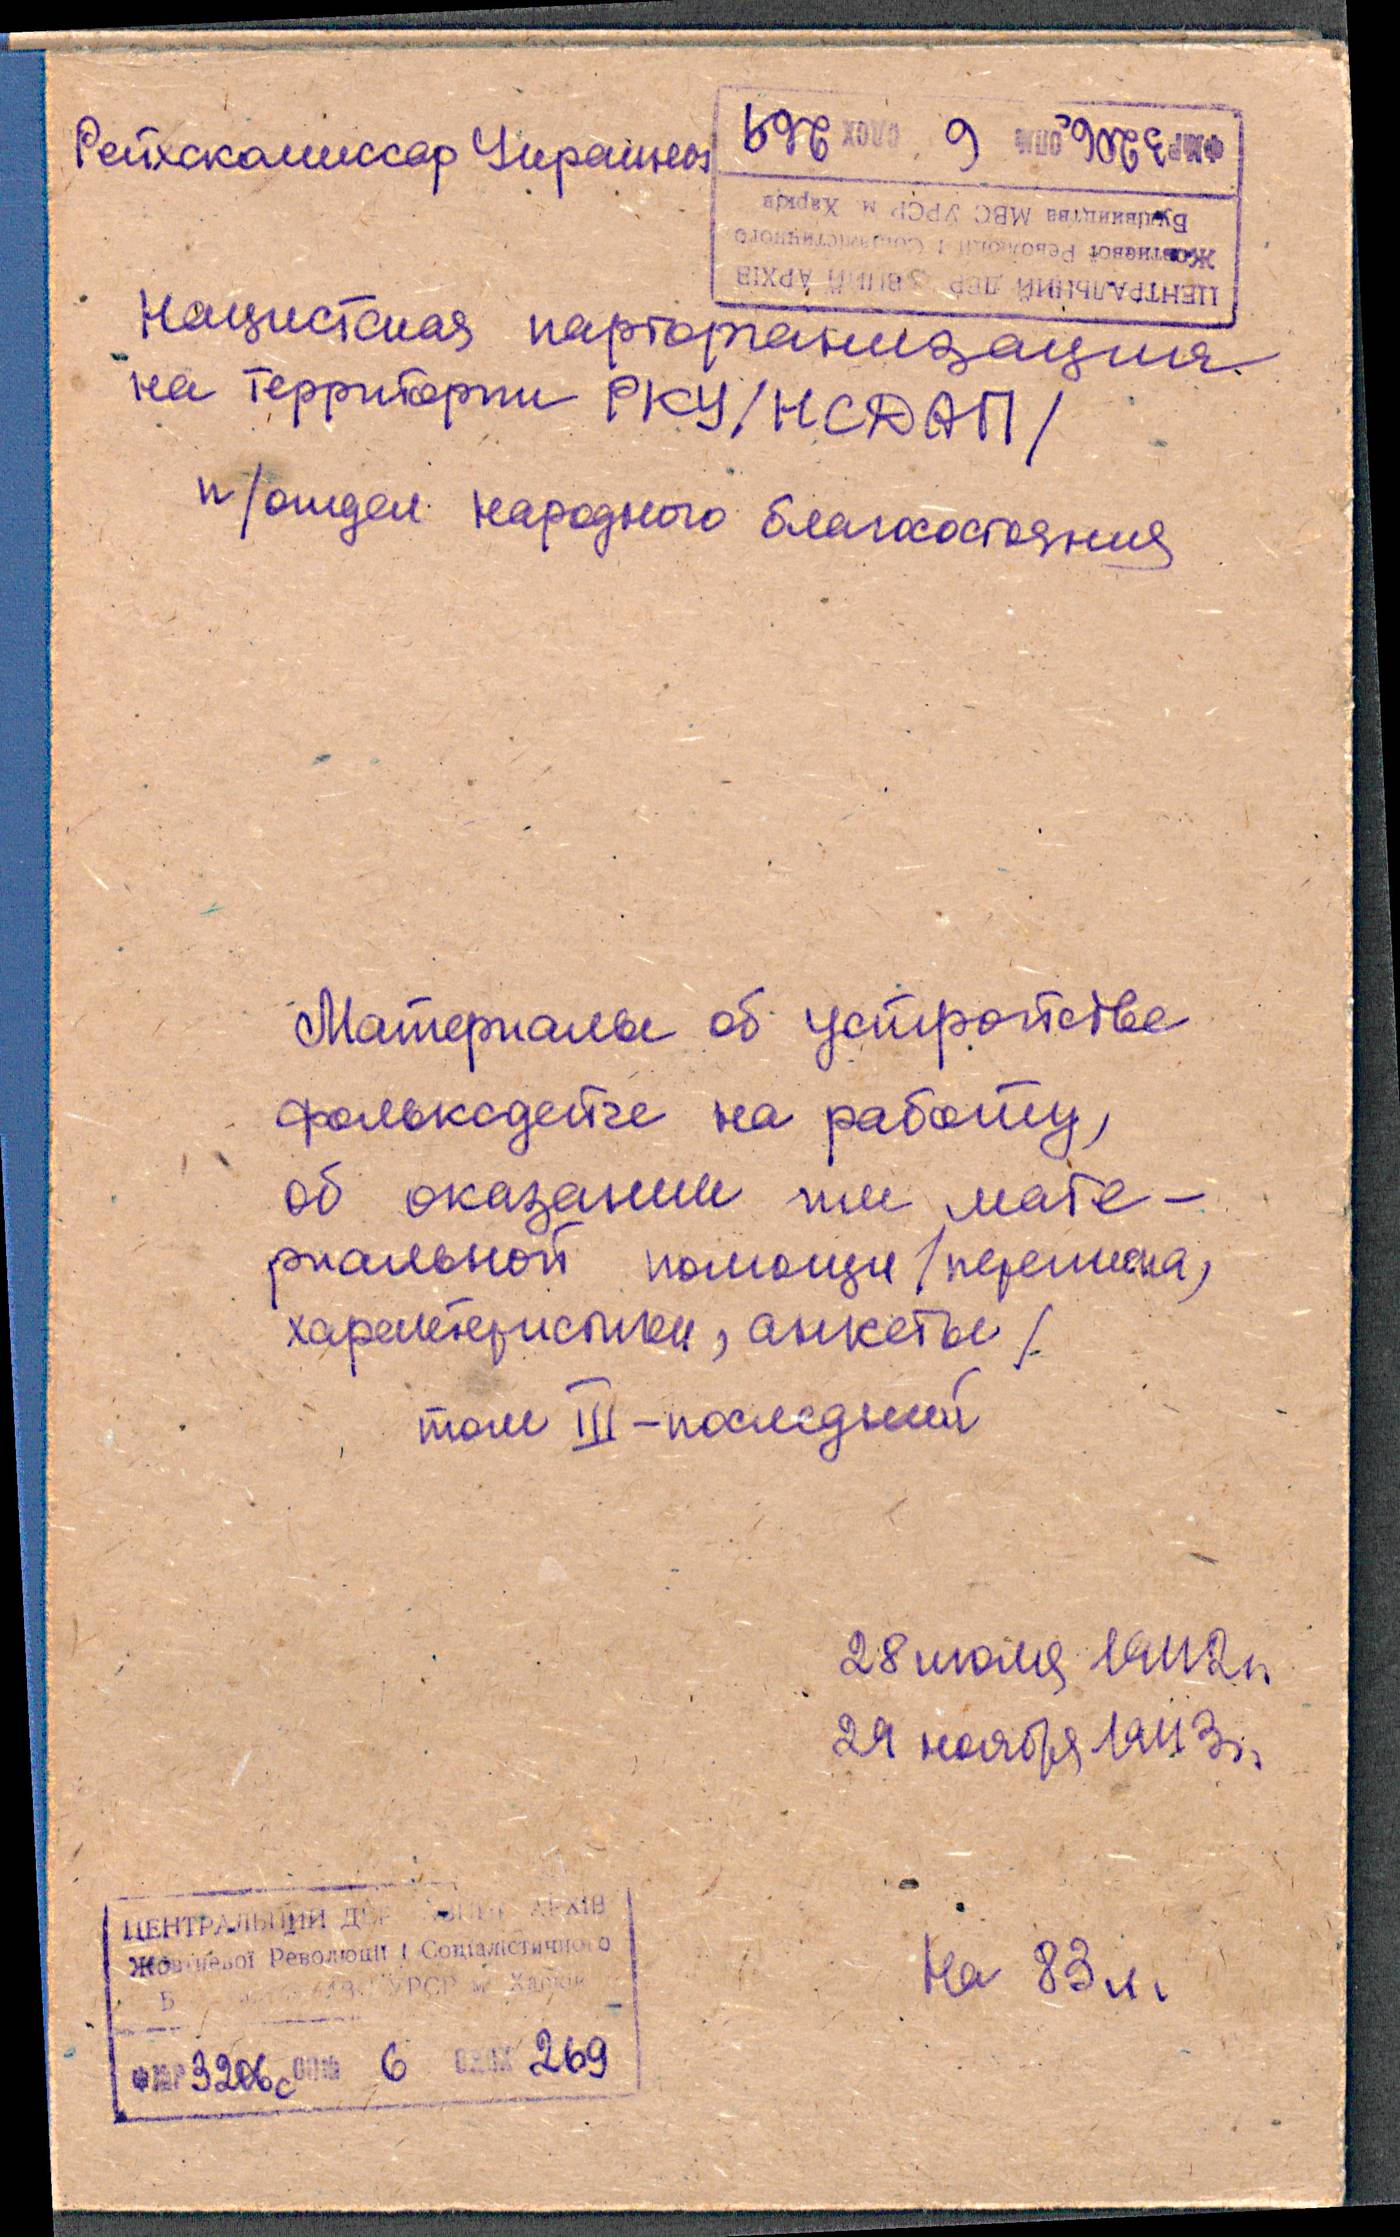 Рейхскомиссар Украины
ФЖР 3206с ОПЖ 6 ОДОХ 269
ЦЕНТРАЛЬНИЙ ДЕРЖАВНИЙ АРХІВ
Жовтневої Революції і Соціалістичного
Будівництва МВС УРСР м. Харків
Нацистская парторганизация
на территории РКУ/НСДАП/
п/отдел народного благосостояния
Материалы об устройстве
фольксдейче на работу,
об оказании им мате-
риальной помощи /переписка,
характеристики, анкеты/
том III - последний
28 июля 1942г.
29 ноября 1943г.
На 83 л.
ЦЕНТРАЛЬНИЙ ДЕРЖАВНИЙ АРХІВ
Жовтневої Революції і Соціалістичного
Б УРСР м. Харків
3206с 6 269